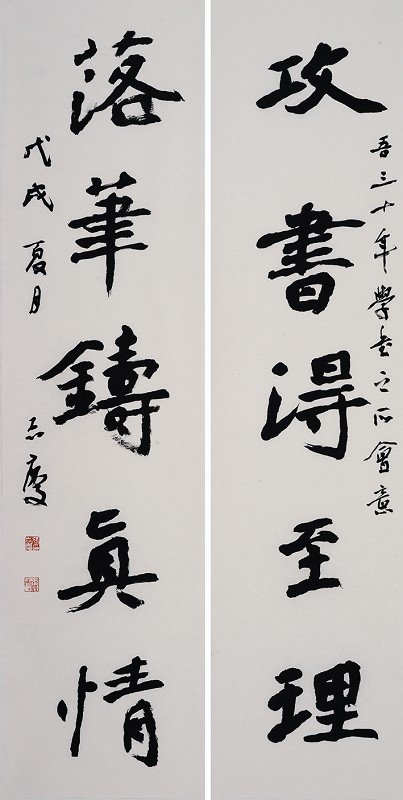 攻書得至理
吾三十年學書之所會意
落筆鑄真情
戊戌夏月